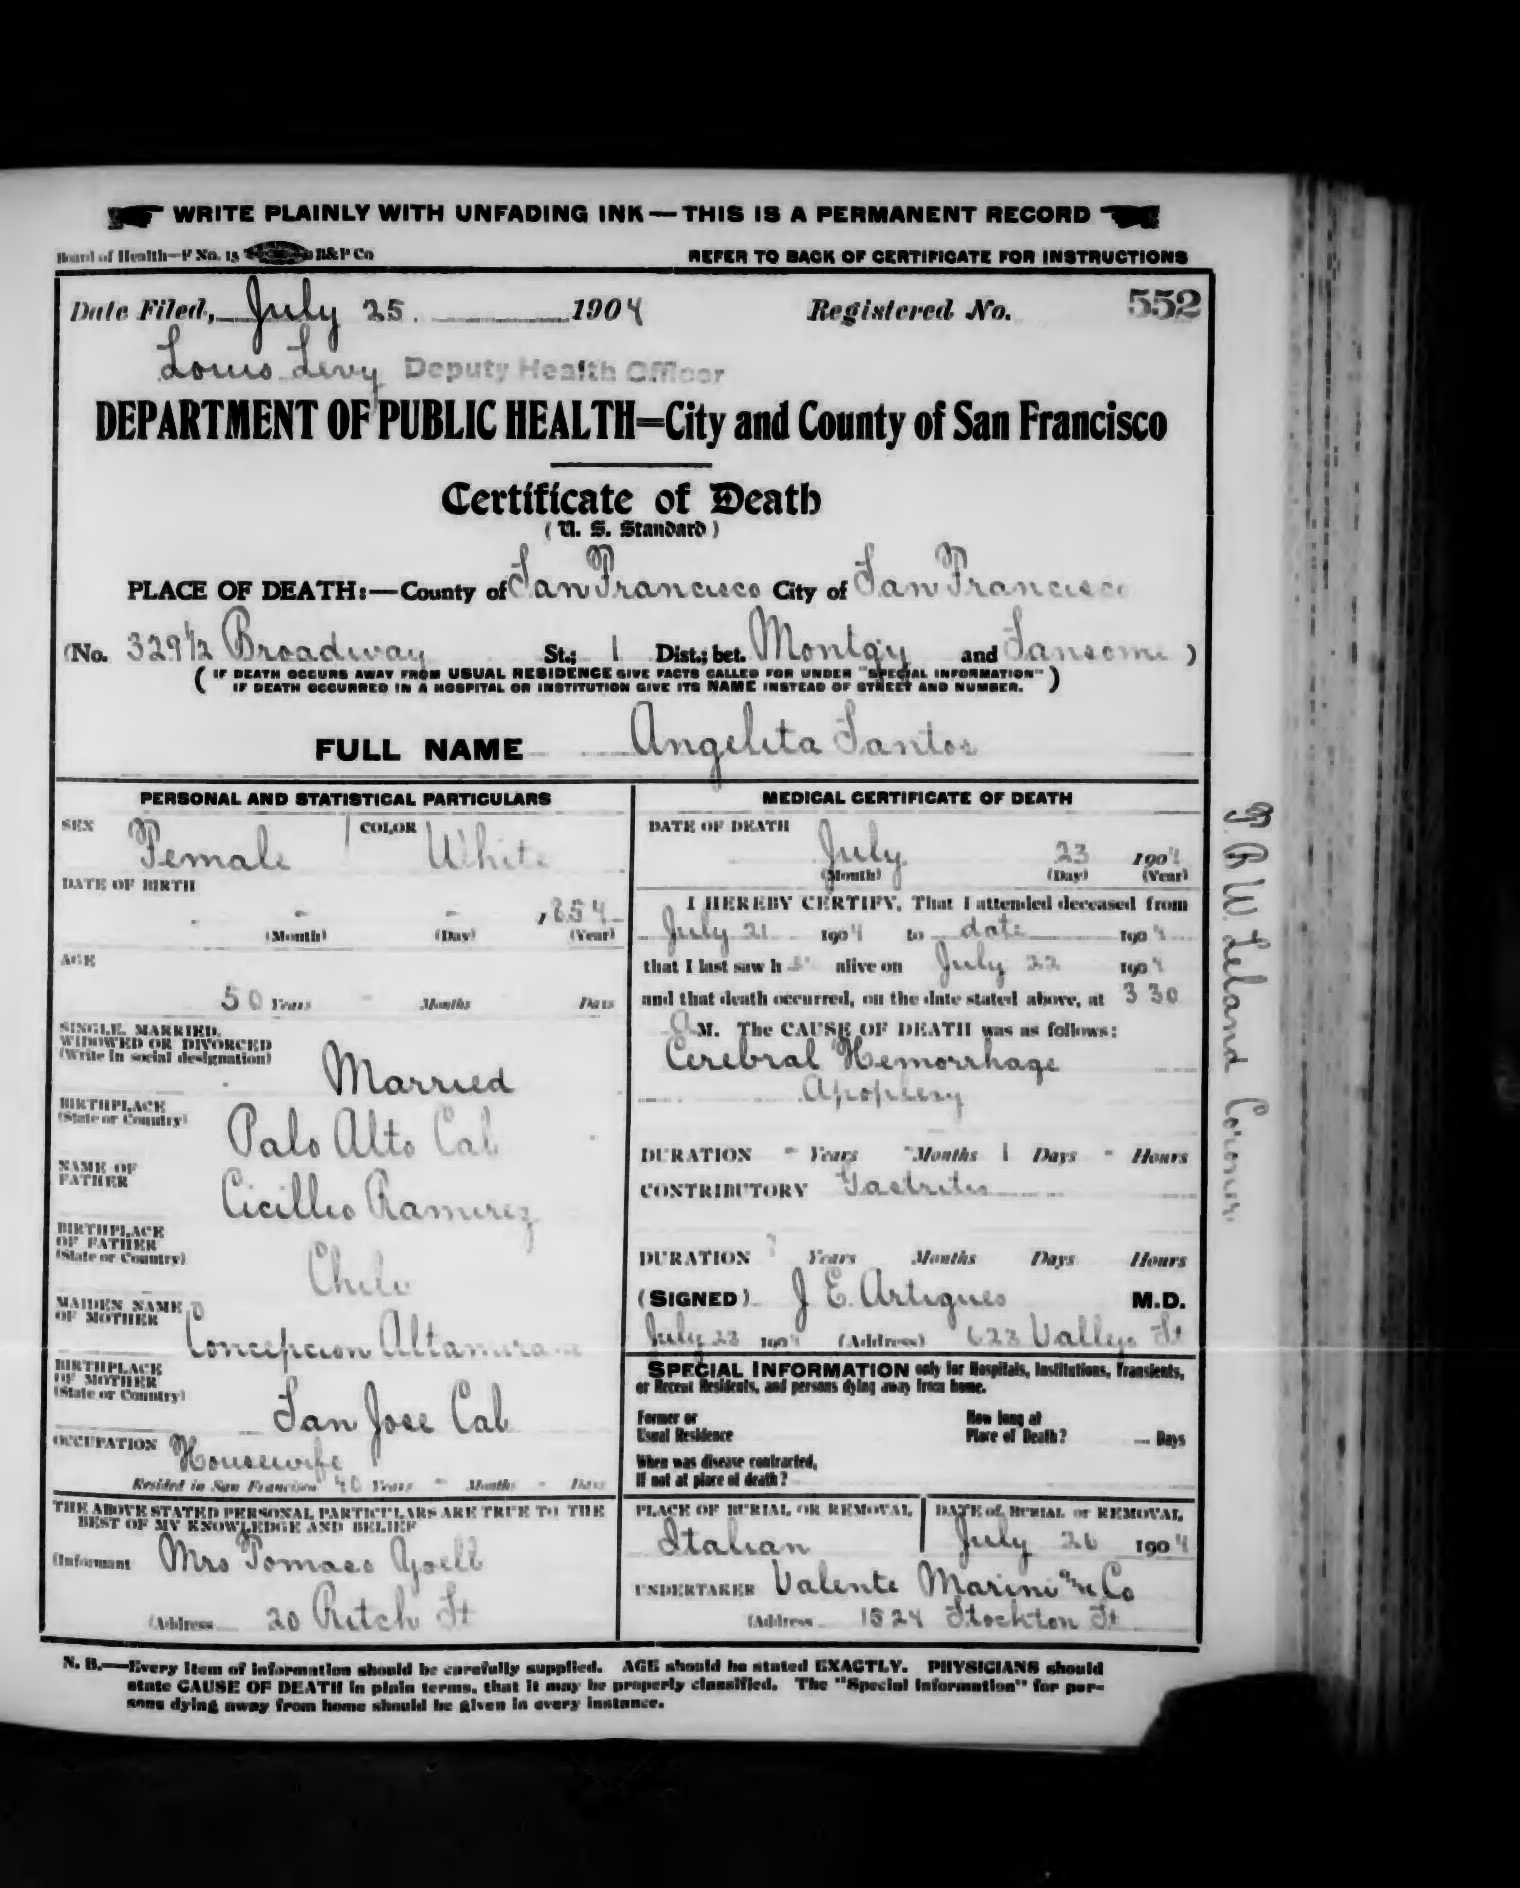 WRITE PLAINLY WITH UNFADING INK — THIS IS A PERMANENT RECORD
Board of Health—F No. 15 B&P Co REFER TO BACK OF CERTIFICATE FOR INSTRUCTIONS
Date Filed, July 25 1904 Registered No. 552
Louis Levy Deputy Health Officer
DEPARTMENT OF PUBLIC HEALTH=City and County of San Francisco
Certificate of Death
(U. S. Standard)
PLACE OF DEATH:—County of San Francisco City of San Francisco
(No. 329 1/2 Broadway St.; 1 Dist.; bet. Montgy and Sansome )
( IF DEATH OCCURS AWAY FROM USUAL RESIDENCE GIVE FACTS CALLED FOR UNDER "SPECIAL INFORMATION"
IF DEATH OCCURRED IN A HOSPITAL OR INSTITUTION GIVE ITS NAME INSTEAD OF STREET AND NUMBER. )
FULL NAME Angelita Santos
PERSONAL AND STATISTICAL PARTICULARS
SEX Female COLOR White
DATE OF BIRTH
- - , 854
(Month) (Day) (Year)
AGE
50 Years - Months Days
SINGLE, MARRIED,
WIDOWED OR DIVORCED
(Write in social designation)
Married
BIRTHPLACE
(State or Country)
Palo Alto Cal
NAME OF
FATHER
Cicillio Ramirez
BIRTHPLACE
OF FATHER
(State or Country)
Chili
MAIDEN NAME
OF MOTHER
Concepcion
BIRTHPLACE
OF MOTHER
(State or Country)
San Jose Cal
OCCUPATION Housewife
Resided in San Francisco 40 Years - Months - Days
THE ABOVE STATED PERSONAL PARTICULARS ARE TRUE TO THE
BEST OF MY KNOWLEDGE AND BELIEF
(Informant Mrs Tomaso
(Address 20 Ritch St
MEDICAL CERTIFICATE OF DEATH
DATE OF DEATH
July 23 1904
(Month) (Day) (Year)
I HEREBY CERTIFY, That I attended deceased from
July 21 1904 to date 1904
that I last saw h alive on July 22 1904
and that death occurred, on the date stated above, at 3 30
A M. The CAUSE OF DEATH was as follows:
Cerebral Hemorrhage
Apoplexy
DURATION - Years - Months 1 Days - Hours
CONTRIBUTORY Gastritis
DURATION ? Years Months Days Hours
(SIGNED) J E. Artigues M.D.
July 23 1904 (Address) 623 Vallejo St
SPECIAL INFORMATION only for Hospitals, Institutions, Transients,
or Recent Residents, and persons dying away from home.
Former or
Usual Residence
How long at
Place of Death? Days
When was disease contracted,
If not at place of death?
PLACE OF BURIAL OR REMOVAL
Italian
DATE of BURIAL or REMOVAL
July 26 1904
UNDERTAKER Valente Marini & Co
(Address 1524 Stockton St
N. B.—Every item of information should be carefully supplied. AGE should be stated EXACTLY. PHYSICIANS should
state CAUSE OF DEATH in plain terms, that it may be properly classified. The "Special Information" for per-
sons dying away from home should be given in every instance.
Leland Coroner